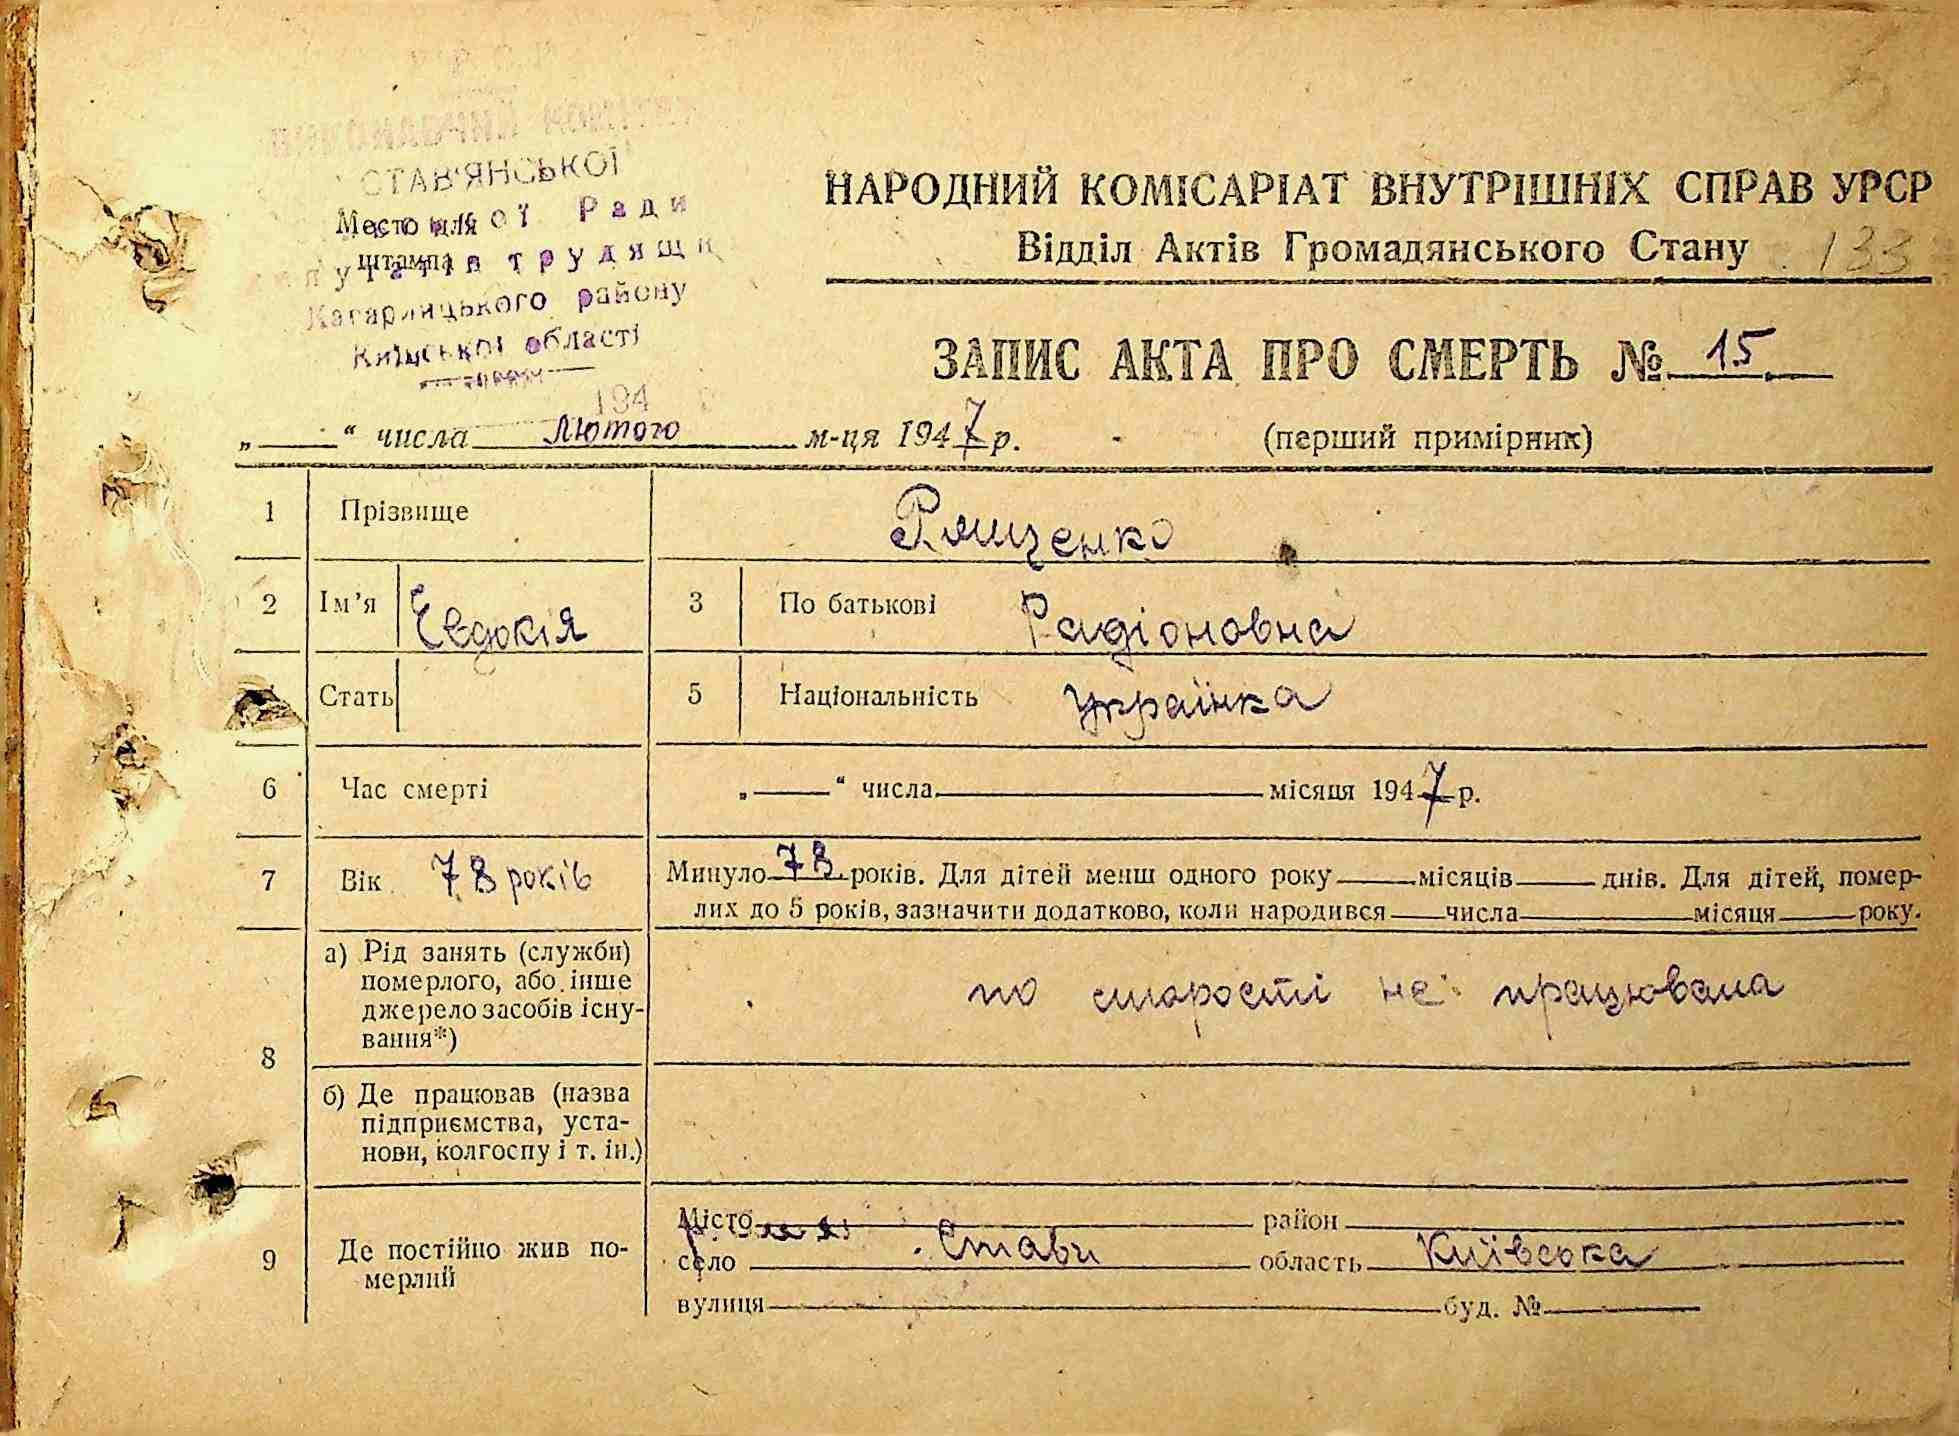 СТАВ'ЯНСЬКОЇ
Место для
ої Ради
штампа
трудящи
Кагарлицького району
Київської області
194
НАРОДНИЙ КОМІСАРІАТ ВНУТРІШНІХ СПРАВ УРСР
Відділ Актів Громадянського Стану 133
ЗАПИС АКТА ПРО СМЕРТЬ № 15
„ “ числа лютого м-ця 1947 р. (перший примірник)
1 Прізвище Рященко
2 Ім’я Євдокія 3 По батькові Радіоновна
Стать 5 Національність українка
6 Час смерті „ “ числа місяця 1947 р.
7 Вік 78 років Минуло 78 років. Для дітей менш одного року місяців днів. Для дітей, помер-
лих до 5 років, зазначити додатково, коли народився числа місяця року.
8 а) Рід занять (служби)
померлого, або інше
джерело засобів існу-
вання*)
по старості не працювала
б) Де працював (назва
підприємства, уста-
нови, колгоспу і т. ін.)
9 Де постійно жив по-
мерлий
Місто район
село Стави область Київська
вулиця буд. №